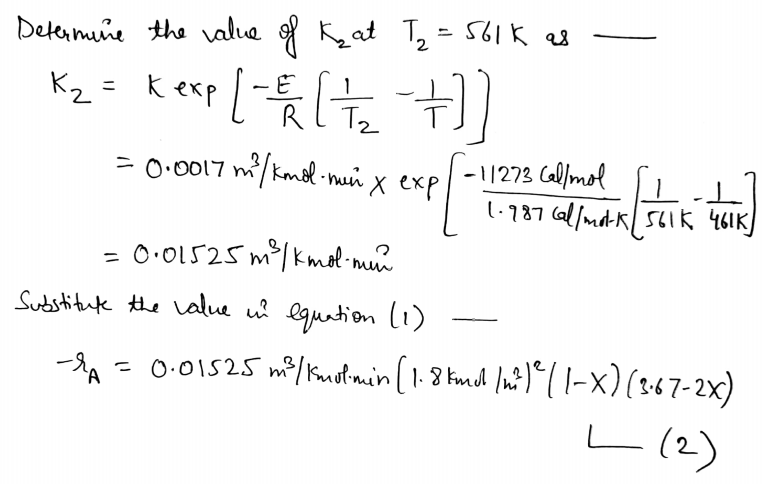 Determine the value of K₂ at T₂ = 561K as —
K₂ = K exp [ -E/R [ 1/T₂ - 1/T ] ]
= 0.0017 m³/Kmol·min × exp [ -11273 Cal/mol / 1.987 Cal/mol·K [ 1/561K - 1/461K ]
= 0.01525 m³/Kmol·min
Substitute the value in equation (1) —
-rA = 0.01525 m³/Kmol·min (1.8 Kmol/m³)² (1-X) (3.67-2X)
(2)